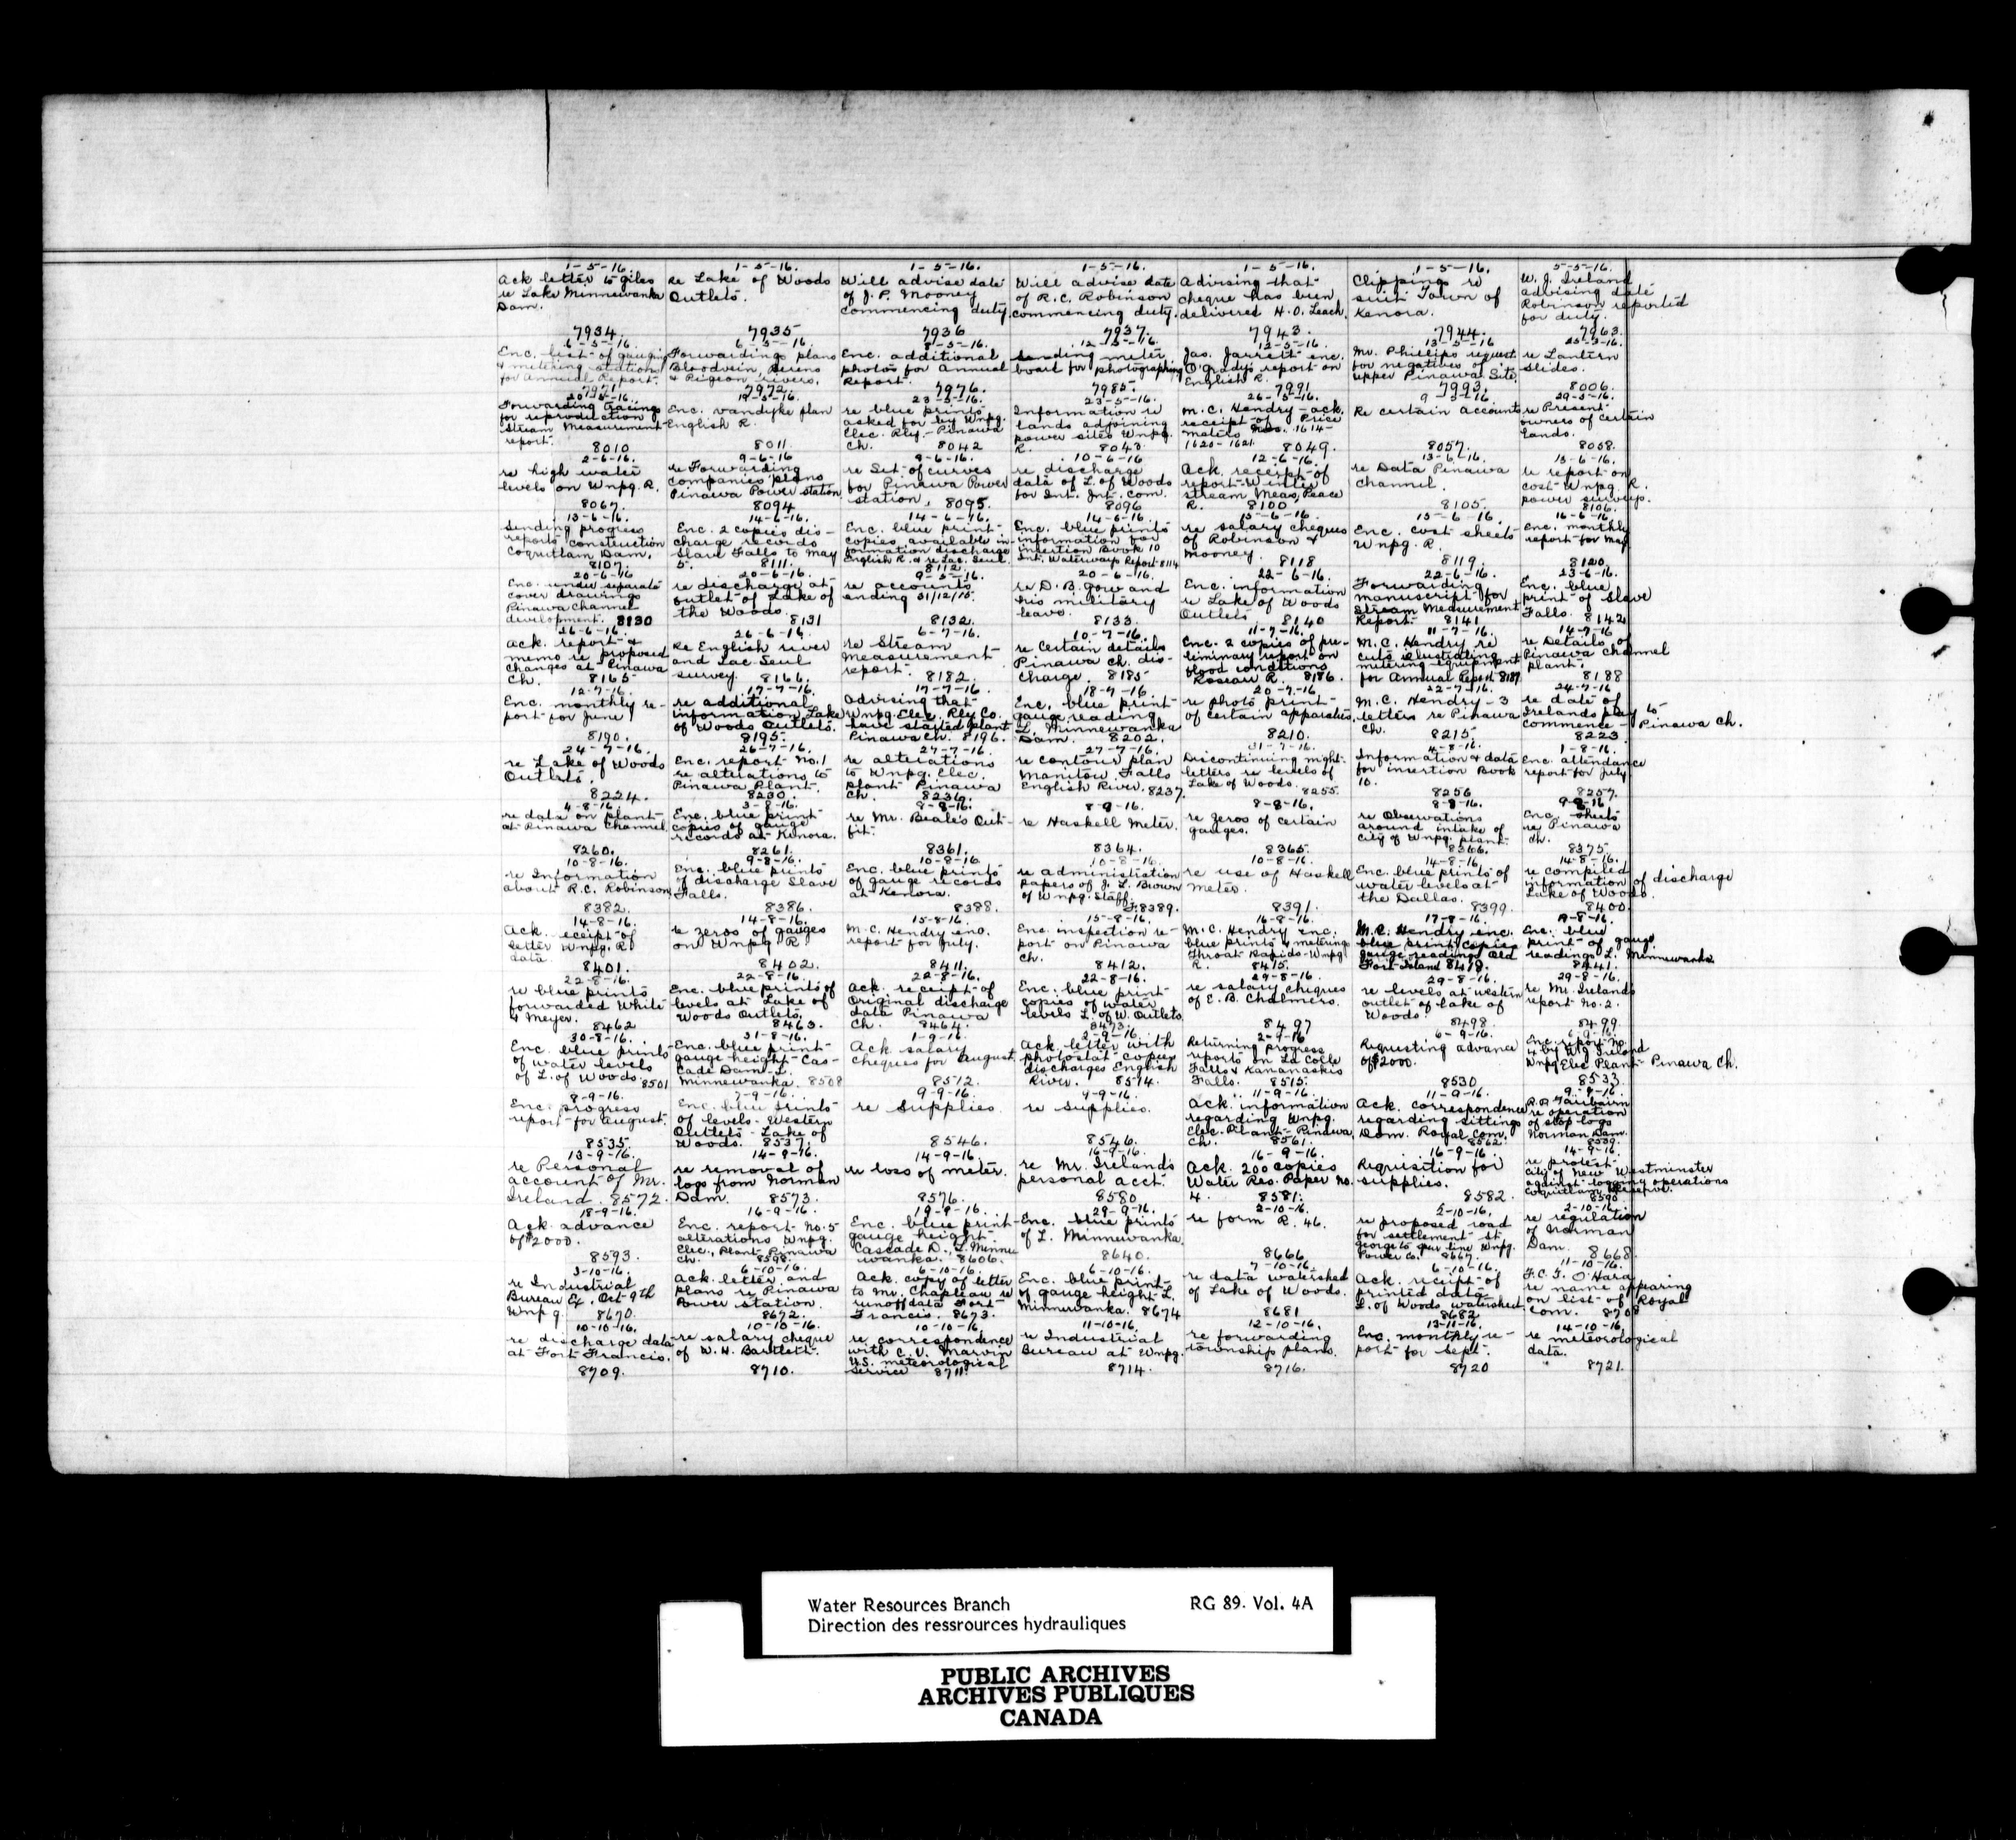 1-5-16.
Ack letter to Giles
re Lake Minnewanka
Dam.
7934.
1-5-16.
Re Lake of Woods
Outlets.
7935
1-5-16.
Will advise date
of J. P. Mooney
commencing duty.
7936
1-5-16.
Will advise date
of R.C. Robinson
commencing duty.
7937.
1-5-16.
Advising that
cheque has been
delivered H.O. Leach.
7943.
1-5-16.
Clippings re
suit Town of
Kenora.
7944.
5-5-16.
W. J. Ireland
advising date
Robinson reported
for duty.
7963.
6-5-16.
Enc. list of gauging
& metering stations
for Annual Report.
7971
6-5-16.
Forwarding plans
Bloodvein, Berens
& Pigeon rivers.
7972.
8-5-16.
Enc. additional
photos for Annual
Report.
7976.
12-5-16.
Sending meter
board for photographing
7985.
12-5-16.
Jas. Jarrett enc.
O'Gradys report on
English R.
7991
13-5-16
Mr. Phillips request
for negatives of
upper Pinawa Site.
7993.
25-5-16.
re Lantern
slides.
8006.
20-5-16.
Forwarding tracings
for reproduction
Stream Measurement
report.
8010
19-5-16.
Enc. vandyke plan
English R.
8011.
23-5-16.
re blue prints
asked for by Wnpg.
Elec. Rly. - Pinawa
Ch.
8042
23-5-16.
Information re
lands adjoining
power sites Wnpg.
R.
8043.
26-5-16.
M.C. Hendry ack.
receipt of Price
meters Nos. 1614-
1620-1621.
8049.
9-5-16.
Re certain accounts
8057.
29-5-16.
re Present
owners of certain
lands.
8058.
2-6-16.
re high water
levels on Wnpg. R.
8067.
9-6-16
re Forwarding
companies plans
Pinawa Power station.
8094
9-6-16.
re Set of curves
for Pinawa Power
station.
8095.
10-6-16
re discharge
data of L. of Woods
for Int. Jnt. Com.
8096
12-6-16
Ack. receipt of
report-Winter
stream Meas. Peace
R.
8100
13-6-16.
re Data Pinawa
Channel.
8105.
13-6-16.
re report on
cost Wnpg. R.
power surveys.
8106.
13-6-16.
Sending progress
reports construction
Coquitlam Dam.
8107.
14-6-16.
Enc. 2 copies dis-
charge records
Slave Falls to May
5.
8111.
14-6-16.
Enc. blue print
copies available in-
formation discharge
English R. & re Lac. Seul.
8112
14-6-16
Enc. blue prints
information for
insertion Book 10
Int. Waterways Report. 8114
15-6-16.
re salary cheques
of Robinson &
Mooney.
8118
15-6-16.
Enc. cost sheets
Wnpg. R.
8119.
16-6-16
Enc. monthly
report for May.
8120.
20-6-16
Enc. under separate
cover drawings
Pinawa Channel
development. 8130
20-6-16.
re discharge at
outlet of Lake of
the Woods.
8131
9-5-16.
re accounts
ending 31/12/15.
8132.
20-6-16.
re D. B. Gow and
his military
leave.
8133.
22-6-16.
Enc. information
re Lake of Woods
Outlets.
8140
22-6-16.
Forwarding
manuscript for
Stream Measurement
Report.
8141
23-6-16.
Enc. blue
print of Slave
Falls.
8142
26-6-16.
Ack. report &
memo re proposed
changes at Pinawa
Ch.
8165
26-6-16.
Re English river
and Lac Seul
survey.
8166.
6-7-16.
re Stream
Measurement
report.
8182.
10-7-16.
re certain details
Pinawa Ch. dis-
charge.
8185
11-7-16.
Enc. 2 copies of pre-
liminary report on
flood conditions
Roseau R. 8186.
11-7-16.
M.C. Hendry re
cuts illustrating
metering equipment
for Annual Report 8187
14-7-16
re Details of
Pinawa channel
plant.
8188
12-7-16.
Enc. monthly re-
port for June.
8190.
17-7-16.
re additional
information Lake
of Woods Outlets.
8195.
17-7-16.
Advising that
Wnpg. Elec. Rly Co.
have started plant
Pinawa Ch. 8196.
18-7-16
Enc. blue print
gauge reading
L. Minnewanka
Dam.
8202.
20-7-16
re photo print
of certain apparatus.
8210.
22-7-16.
M.C. Hendry - 3
letters re Pinawa
Ch.
8215.
24-7-16.
re date of
Irelands pay to
commence - Pinawa Ch.
8223
24-7-16.
re Lake of Woods
Outlets.
8224.
26-7-16.
Enc. report No. 1
re alterations to
Pinawa Plant.
8230.
27-7-16.
re alterations
to Wnpg. Elec.
Plant Pinawa
Ch.
8236.
27-7-16.
re contour plan
Manitou Falls
English River. 8237.
31-7-16.
Discontinuing night-
letters re levels of
Lake of Woods. 8255.
4-8-16.
Information & data
for insertion Book
10.
8256
1-8-16.
Enc. attendance
report for July.
8257.
4-8-16.
re data on plant
at Pinawa Channel.
8260.
3-8-16.
Enc. blue print
copies of gauge
records at Kenora.
8261.
8-8-16.
re Mr. Beale's Out-
fit.
8361.
8-8-16.
re Haskell Meter.
8364.
8-8-16.
re zeros of certain
gauges.
8365
8-8-16.
re Observations
around intake of
City of Wnpg. plant.
8366.
9-8-16
Enc. sheets
re Pinawa
Ch.
8375.
10-8-16.
re Information
about R.C. Robinson.
8382.
9-8-16.
Enc. blue prints
of discharge Slave
Falls.
8386.
10-8-16
Enc. blue prints
of gauge records
at Kenora.
8388.
10-8-16.
re administration
papers of J. L. Brown
of Wnpg. Staff.
8389.
10-8-16.
re use of Haskell
Meter.
8391.
14-8-16.
Enc. blue prints of
water levels at
the Dallas. 8399.
14-8-16.
re compiled
information of discharge
Lake of Woods.
8400.
14-8-16.
Ack. receipt of
letter Wnpg. R.
data.
8401.
14-8-16.
re zeros of gauges
on Wnpg. R
8402.
15-8-16.
M.C. Hendry enc.
report for July.
8411.
15-8-16.
Enc. inspection re-
port on Pinawa
Ch.
8412.
16-8-16.
M.C. Hendry enc.
blue prints & meterings
Throat Rapids-Wnpg
R.
8415.
17-8-16.
M.C. Hendry enc.
blue print copies
gauge readings Old
Fort Island 8418.
19-8-16.
Enc. blue
print of gauge
readings L. Minnewanka.
8441.
22-8-16.
re blue prints
forwarded White
& Meyer.
8462
22-8-16.
Enc. blue prints of
levels at Lake of
Woods Outlets.
8463.
22-8-16.
Ack. receipt of
Original discharge
data Pinawa
Ch.
8464.
22-8-16.
Enc. blue print
copies of water
levels L. of W. Outlets.
8473.
29-8-16.
re salary cheques
of E. B. Chalmers.
8497
29-8-16.
re levels at western
outlet of Lake of
Woods.
8498.
29-8-16.
re Mr. Irelands
report No. 2.
8499.
30-8-16.
Enc. blue prints
of water levels
of L. of Woods. 8501
31-8-16.
Enc. blue print
gauge height-Cas-
cade Dam-L.
Minnewanka. 8508
1-9-16.
Ack salary
cheques for August.
8512.
2-9-16.
Ack. letter with
photostat copies
discharges English
River. 8514.
2-9-16
Returning progress
reports on La Colle
Falls & Kananaskis
Falls. 8515.
6-9-16.
Requesting advance
of $2000.
8530
6-9-16.
Enc. report No.
4 by W.J. Ireland
Wnpg Elec Plant - Pinawa Ch.
8533.
8-9-16.
Enc. progress
report for August.
8535.
7-9-16.
Enc. blue prints
of levels - Western
Outlets - Lake of
Woods. 8537.
9-9-16.
re Supplies.
8546.
9-9-16.
re Supplies.
8546.
11-9-16.
Ack. information
regarding Wnpg.
Elec. Plant-Pinawa
Ch. 8561.
11-9-16.
Ack. correspondence
regarding sittings
Dom. Royal Com.
8562.
9-9-16.
R.P. Fairbairn
re operation
of stop logs
Norman Dam.
8559.
13-9-16.
re Personal
account of Mr.
Ireland. 8572.
14-9-16.
re removal of
logs from Norman
Dam. 8573.
14-9-16.
re loss of meter.
8576.
16-9-16.
re Mr. Ireland's
personal acct.
8580
16-9-16.
Ack. 200 copies
Water Res. Paper No.
4. 8581.
16-9-16.
Requisition for
supplies.
8582.
14-9-16.
re protest
City of New Westminster
against logging operations
Coquitlam Reserve.
8590
18-9-16.
Ack advance
of $2000.
8593.
16-9-16.
Enc. report No. 5
alterations Wnpg.
Elec., Plant-Pinawa
Ch. 8598.
19-9-16.
Enc. blue print
gauge height
Cascade D., L. Minne
wanka. 8606.
29-9-16.
Enc. blue prints
of L. Minnewanka.
8640.
2-10-16.
re form R. 46.
8666
2-10-16.
re proposed road
for settlement St.
George to spur line Wnpg.
Power Co. 8667.
2-10-16.
re regulation
of Norman
Dam. 8668
3-10-16.
re Industrial
Bureau Ex. Oct 9th
Wnpg. 8670.
6-10-16.
Ack. letter and
plans re Pinawa
Power station.
8672.
6-10-16.
Ack. copy of letter
to Mr. Chapleau re
runoff data Fort
Francis. 8673.
6-10-16.
Enc. blue print
of gauge height L.
Minnewanka. 8674
7-10-16.
re data watershed
of Lake of Woods.
8681
6-10-16.
Ack. receipt of
printed data
L. of Woods watershed.
8682
11-10-16.
F.C.T. O'Hara
re name appearing
on list of Royal
Com. 8708
10-10-16.
re discharge data
at Fort Francis.
8709.
10-10-16.
re salary cheque
of W. H. Bartlett.
8710.
10-10-16.
re correspondence
with C.V. Marvin
U.S. meteorological
Service 8711.
11-10-16.
re Industrial
Bureau at Wnpg.
8714.
12-10-16.
re forwarding
township plans.
8716.
13-11-16.
Enc. monthly re-
port for Sept.
8720
14-10-16.
re meteorological
data.
8721.
Water Resources Branch RG 89. Vol. 4A
Direction des ressrources hydrauliques
PUBLIC ARCHIVES
ARCHIVES PUBLIQUES
CANADA